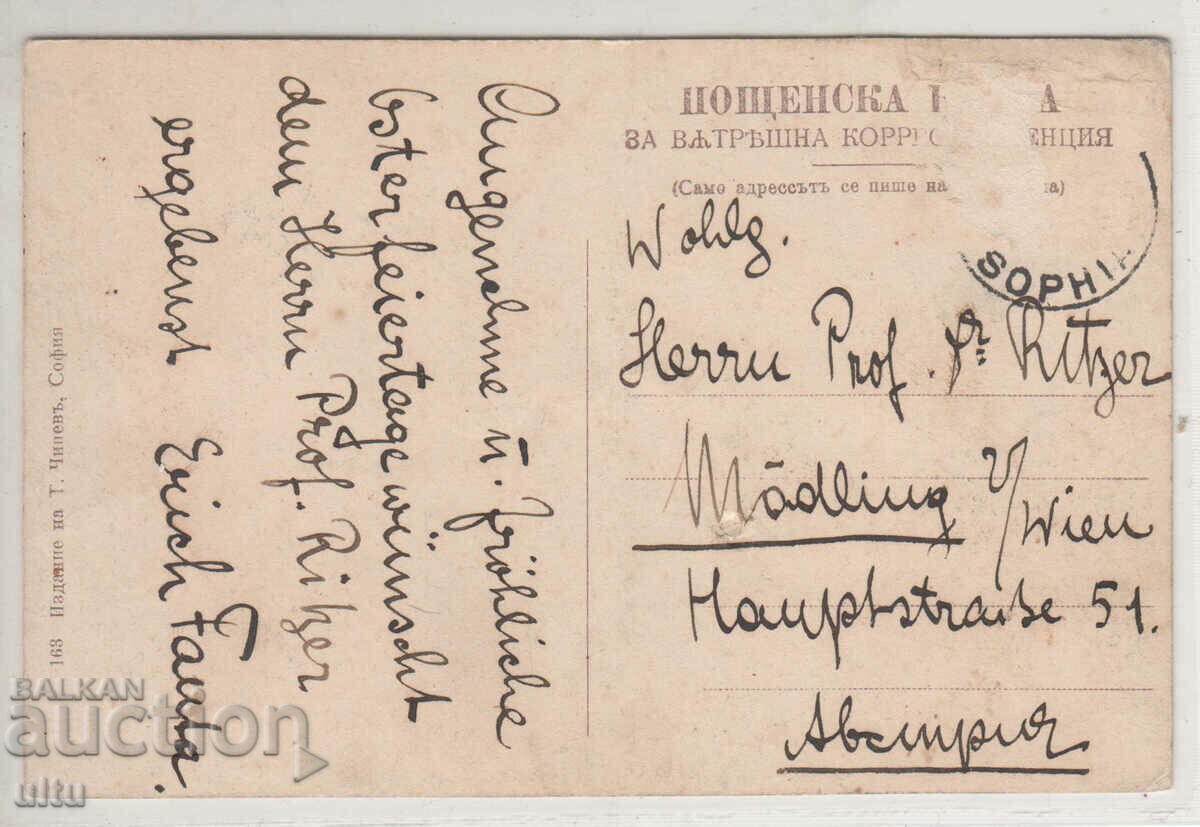 ПОЩЕНСКА К А
ЗА ВѪТРѢШНА КОРРЕС ЕНЦИЯ
(Само адрессътъ се пише на на)
SOPHIA
Wohlg.
Herrn Prof. Dr. Ritzer
Mödling b/Wien
Hauptstraße 51.
Австрия
Angenehme u. fröhliche
Osterfeiertage wünscht
dem Herrn Prof. Ritzer
ergebenst Erich Fanta.
163 Издание на Г. Чипевъ, София
BALKAN
auction
ultu